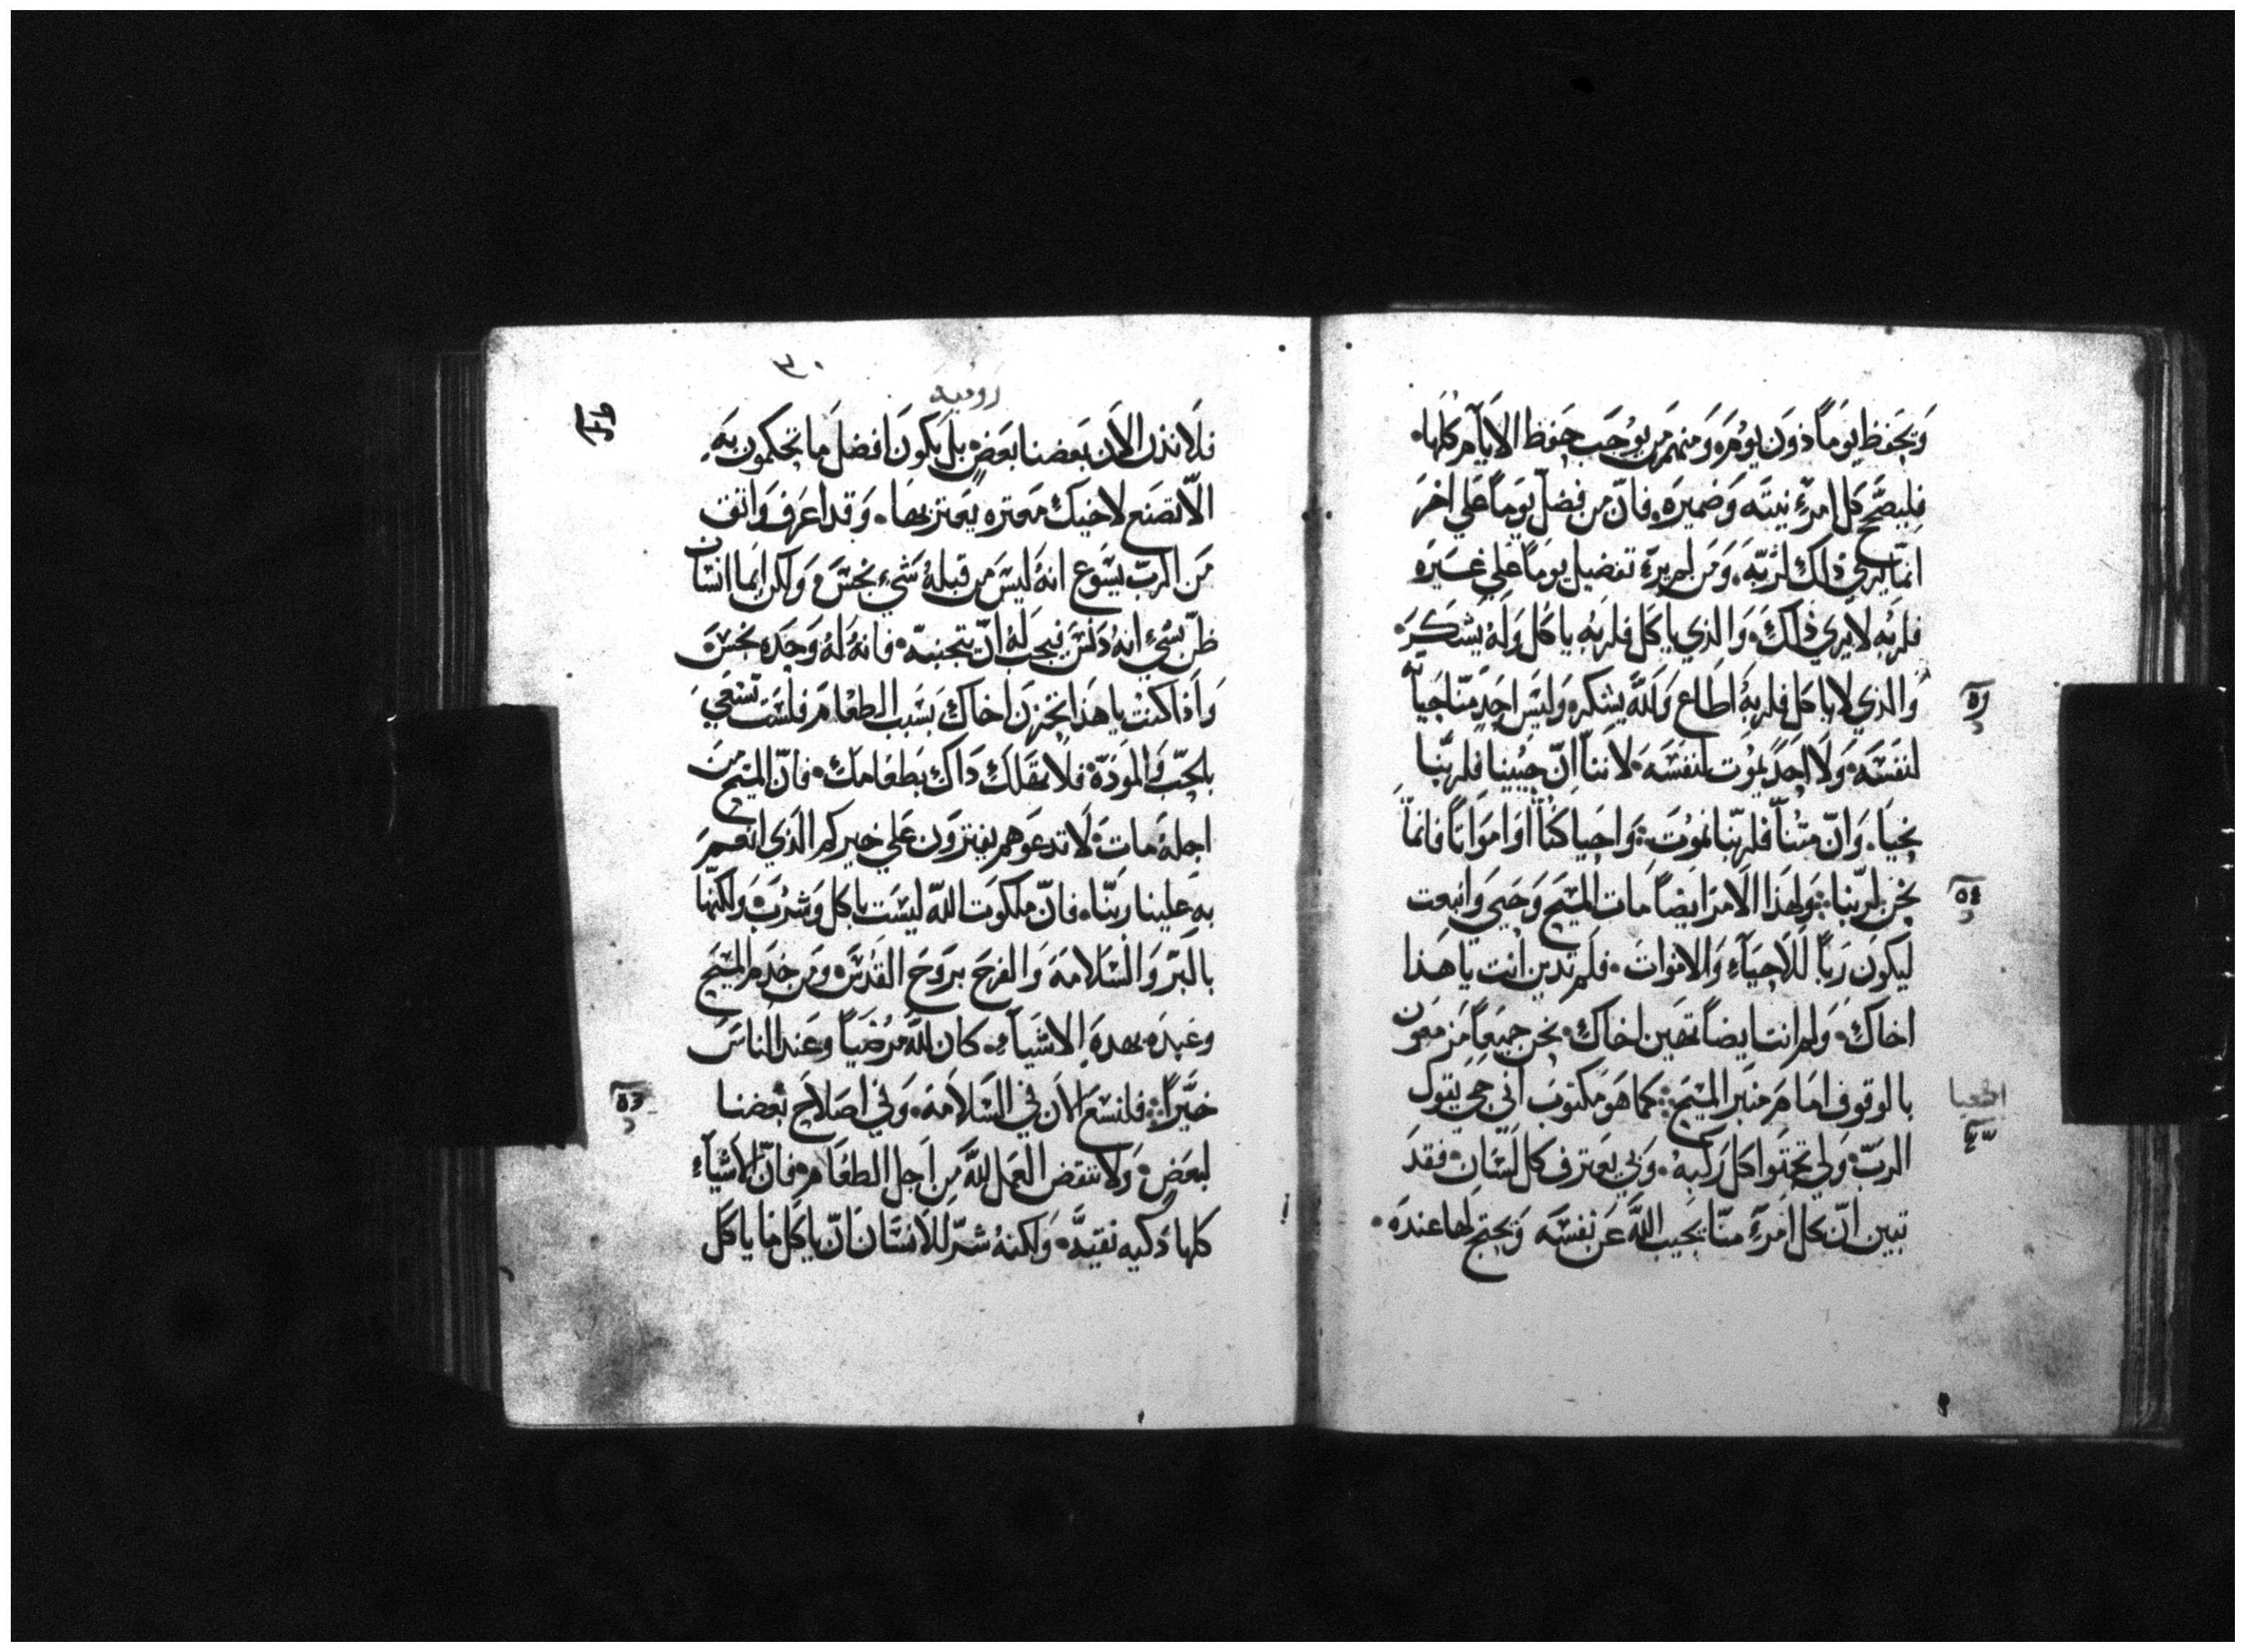 وَيحَفظ يوَماً دَوَن يوُم وَمنهم مَن يوُجَب حَفظ الاَيآم كلها٠
فليصَحّ كل امرَءٍ نيتَه وَضميرَه٠ فانّ من فضلّ يوَماً علي اخرَ
انمّا يرَي ذلك لرَبّهَ٠ وَمَن لم يرَي تفضيل يوماً علي غيَره
فلرَبُه لا يرَي ذلكَ٠ وَالذي ياكل فلرَبهِ ياكل وَلهَ يَشكرَ٠
وَالذي لا ياكل فلرَبهَ اطَاع وَللَّه يشكره وَليَس احَد منّا حَياً
لنفسَه٠ وَلا احَد يموُت لنفسَه٠ لاننآ انّ حيينا فلربّنا
نحيَا٠ وَانّ متنآ فلربّنا نموُت٠ وَاحيا كنّا اوَ اموَاتاً فانمّا
نحَن لربّنا٠ وَلهذا الاَمرَ ايضاً مَات المسَيح وَحَيي وَانبعت
ليكوَن رَباً للاَحيَآءِ وَالاموَات٠ فلم تدَين انت يا هَذا
اخاكَ٠ وَلم انت ايضاً تهَين اخاكَ٠ نحن جميَعاً مزمعوَن
بالوقوف امَام منَبر المسَيح٠ كما هَوَ مكتوبَ اني حَيَ يقوَل
الرَبّ٠ وَلي تحتوا كل رَكبهُ٠ وَبي يعَترف كل لسَان٠ فقدَ
تبين انّ كل امَرءٍ منّا يجَيب اللَّه عَن نفسَه وَيحتج لها عندَه٠
٥٤
اشعيا
٣٠
رَوميهَ
فلاَ ندن الاَن بَعضنا بعَضٍ بل يكوَن افضلَ مَا تحكموَن بهَ
الّا تصَنع لاخيك مَعثره يعَثر بهَا٠ وَقد اعَرف وَاتق
مَن الرَبّ يسَوَع انهُ ليسَ من قبلهُ شَيءٍ نجسَ٠ وَلكن ايمَا انسَان
ظنّ بشيءٍ انهُ دَنسَ فيجَب لهُ انّ يتجنبهّ٠ فانهُ لهُ وَحَده نجسَ٠
وَاذا كنت يا هَذا تحَزن اخاكَ بسَبب الطعَامَ فلسَت تسَعَيَ
بالحبّ وَالموَدّة٠ فلا تهَلك دَاكَ بطعَامكَ٠ فانّ المسَيح من
اجلهُ مات٠ لاَ تدعوهم يفترَوَن علي خيركم الذي انعم
به علينا رَبّنا٠ فانّ ملكوَت اللّه ليسَت باكل وَشرَب٠ وَلكنهّا
بالبرّ وَالسَلاَمهَ وَالفرَحَ برَوَحَ القدسَ٠ وَمن خدم المسَيح
وعَبده بهدهَ الاشيَآء٠ كان للَّه مُرضَياً وعَند الناسَ
خيّراً٠ فلنسَع الاَن في السَلاَمة٠ وَفي اصَلاَح بعَضنا
لبعَضٍ٠ وَلا ننقض العمَل للَّه من اجَل الطعَام٠ فانّ الاَشيَآءِ
كلها دَكيه نقيَّه٠ وَلكنهُ شرّ للاَنسَان انّ ياكل مَا ياكل